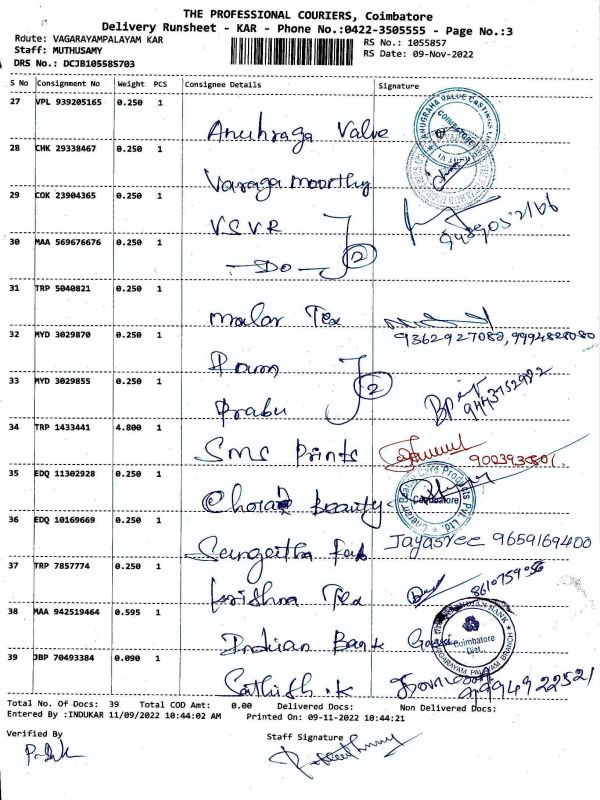 THE PROFESSIONAL COURIERS, Coimbatore
Delivery Runsheet - KAR - Phone No.:0422-3505555 - Page No.:3
Route: VAGARAYAMPALAYAM KAR
Staff: MUTHUSAMY
DRS No.: DCJB105585703
RS No.: 1055857
RS Date: 09-Nov-2022
S No Consignment No Weight PCS Consignee Details Signature
27 VPL 939205165 0.250 1 Anuhraga Valve
28 CHK 29338467 0.250 1 Varaga moorthy
29 COK 23904365 0.250 1 VSVR
30 MAA 569676676 0.250 1 —Do— 2
31 TRP 5040821 0.250 1 Malar Tex
32 MYD 3029870 0.250 1 Ram 9362927080,
33 MYD 3029855 0.250 1 Prabu 2
34 TRP 1433441 4.800 1 Sms Prints
35 EDQ 11302928 0.250 1 beauty Coimbatore
36 EDQ 10169669 0.250 1 Sangeitha Fab Jayasree 9659169400
37 TRP 7857774 0.250 1 Krishna Tex
38 MAA 942519464 0.595 1 Indian Bank Coimbatore Dist.
39 JBP 70493384 0.090 1 Sathish.K
Total No. Of Docs: 39 Total COD Amt: 0.00 Delivered Docs: Non Delivered Docs:
Entered By :INDUKAR 11/09/2022 10:44:02 AM Printed On: 09-11-2022 10:44:21
Verified By
Staff Signature